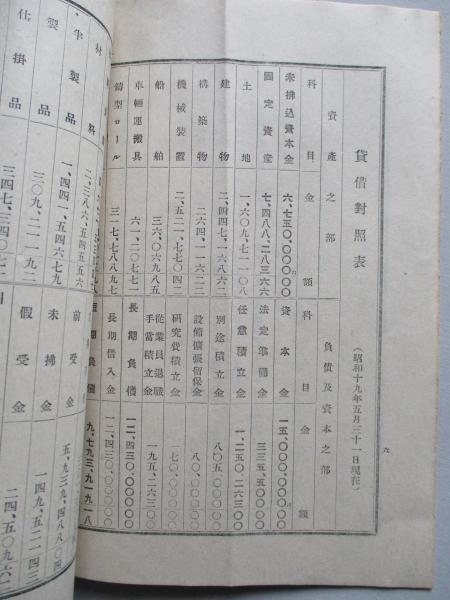 貸借對照表
（昭和十九年五月三十一日現在）
六
資產之部
負債及資本之部
科目
金額
科目
金額
未拂込資本金
六、七五〇、〇〇〇〇〇
資本金
一五、〇〇〇、〇〇〇〇〇
固定資產
七、四八八、二八三六六
法定準備金
三三五、五〇〇〇〇
土地
一、六〇九、七二一〇八
任意積立金
一、二五〇、二六三〇〇
建物
二、四四七、一八六六二
別途積立金
八〇五、〇〇〇〇〇
構築物
二六四、一一六二二
設備擴張留保金
八〇、〇〇〇〇〇
機械裝置
二、五二一、七七〇四二
研究費積立金
一七〇、〇〇〇〇〇
船舶
三六、〇六九八五
從業員退職手當積立金
一九五、二六三〇〇
車輛運搬具
六一、二〇七七二
長期負債
一二、四三〇、〇〇〇〇〇
鑄型ロール
三一七、七八八九七
長期借入金
一二、四三〇、〇〇〇〇〇
期負債
九、七九三、九一九一八
材料
二、三八六、五四五五六
半製品
一、四四一、五四六七九
前受金
五、九三〇、四八八〇四
製品
三〇九、二一一九二
未拂金
一四九、五二一四三
仕掛品
三四七、三四〇七二
假受金
二四、五〇九六二